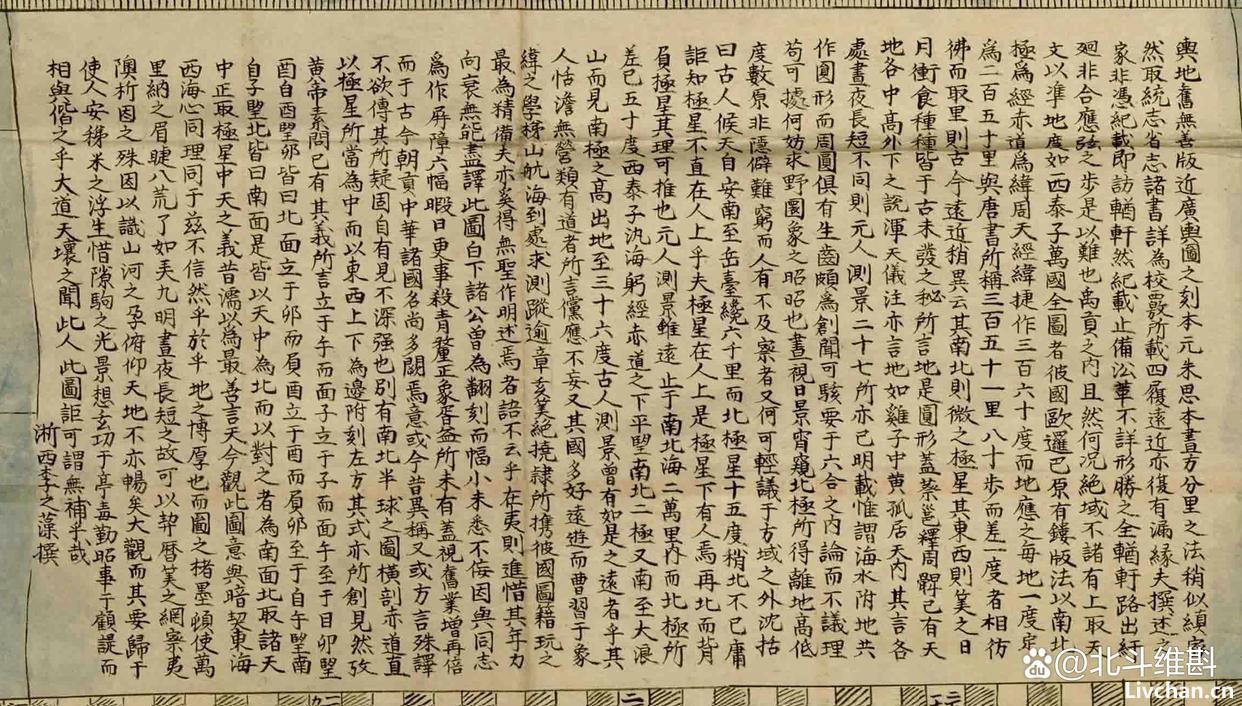 輿地舊無善版近廣輿圖之刻本元朱思本畫方分里之法稍似縝密
然取統志省志諸書詳為校覈所載四履遠近亦復有漏緣夫撰述之
家非憑紀載即訪輶軒然紀載止備沿革不詳形勝之全輶軒路出紆
廻非合應弦之步是以難也禹貢之内且然何況絶域不諸有上取天
文以準地度如西泰子萬國全圖者彼國歐邏巴原有鏤版法以南北
極爲經赤道爲緯周天經緯捷作三百六十度而地應之每地一度定
爲二百五十里與唐書所稱三百五十一里八十步而差一度者相彷
彿而取里則古今遠近稍異云其南北則徵之極星其東西則筭之日
月衝食種種皆千古未發之秘所言地是圓形蓋蔡邕釋周髀已有天
地各中高外下之說渾天儀注亦言地如雞子中黄孤居天内其言各
處晝夜長短不同則元人測景二十七所亦已明載惟謂海水附地共
作圓形而周圓俱有生齒頗爲創聞可駭要于六合之内論而不議理
苟可據何妨求野圜象之昭昭也晝視日景宵窺北極所得離地高低
度數原非隱僻難窮而人有不及察者又何可輕議于方域之外沈括
曰古人候天自安南至岳臺纔六千里而北極星十五度稍北不已庸
詎知極星不直在人上乎夫極星在人上是極星下有人焉再北而背
負極星其理可推也元人測景雖遠止于南北海二萬里内而北極所
差已五十度西泰子汎海躬經赤道之下平望南北二極又南至大浪
山而見南極之高出地至三十六度古人測景曾有如是之遠者乎其
人恬澹無營類有道者所言儻應不妄又其國多好遠遊而曹習于象
緯之學梯山航海到處求測蹤逾章亥筭絶撓隷所携彼國圖籍玩之
最為精備夫亦奚得無聖作明述焉者語不云乎在夷則進惜其年力
向衰無能盡譯此圖白下諸公曾為翻刻而幅小未悉不佞因與同志
爲作屏障六幅暇日更事殺青釐正象胥益所未有蓋視舊業增再倍
而于古今朝貢中華諸國名尚多闕焉意或今昔異稱又或方言殊譯
不欲傳其所疑固自有見不深强也别有南北半球之圖横剖赤道直
以極星所當為中而以東西上下為邊附刻左方其式亦所創見然攷
黄帝素問已有其義所言立于午而面子立于子而面午至于自卯望
酉自酉望卯皆曰北面立于卯而負酉立于酉而負卯至于自午望南
自子望北皆曰南面是皆以天中為北而以對之者為南面北取諸天
中正取極星中天之義昔儒以為最善言天今觀此圖意與暗契東海
西海心同理同于茲不信然乎於乎地之博厚也而圖之楮墨頓使萬
里納之眉睫八荒了如弄丸明晝夜長短之故可以挈曆筭之綱察夷
隩析因之殊因以識山河之孕俯仰天地不亦暢矣大觀而其要歸于
使人安稊米之浮生惜隙駒之光景想玄功于亭毒勤昭事于顧諟而
相與偕之乎大道天壤之間此人此圖詎可謂無補乎哉
浙西李之藻撰
Bai du @北斗维斟
Livchan.cn